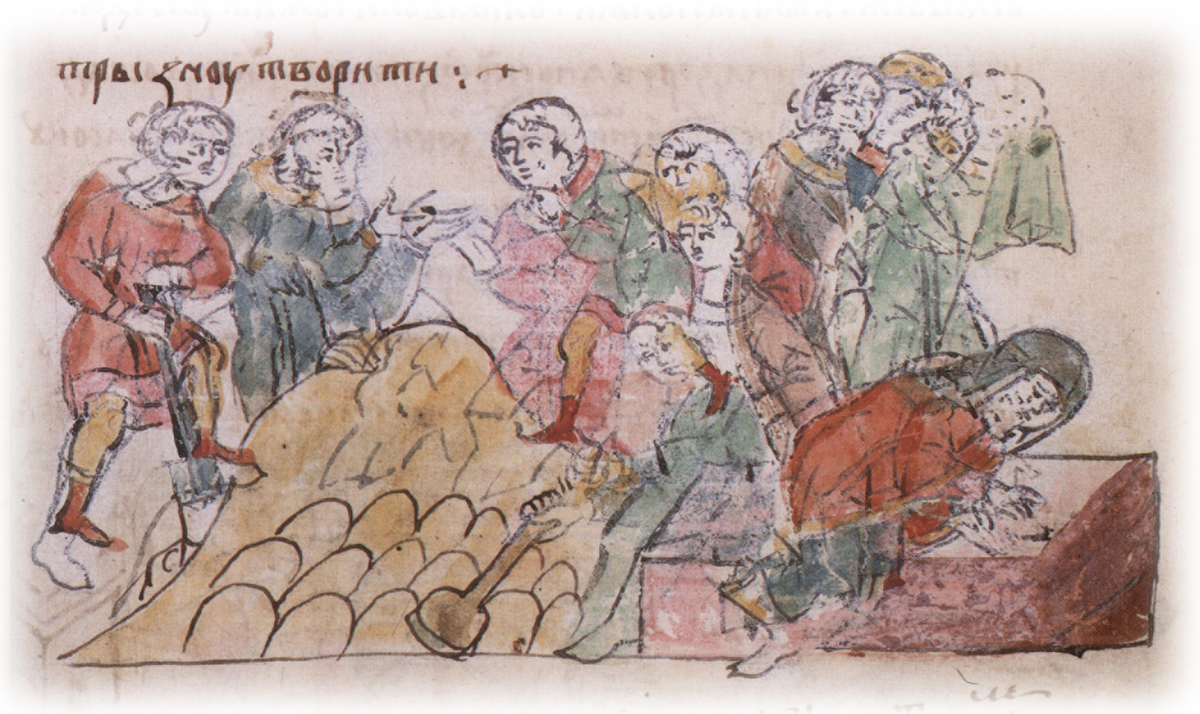 трыꙁноу творити :·